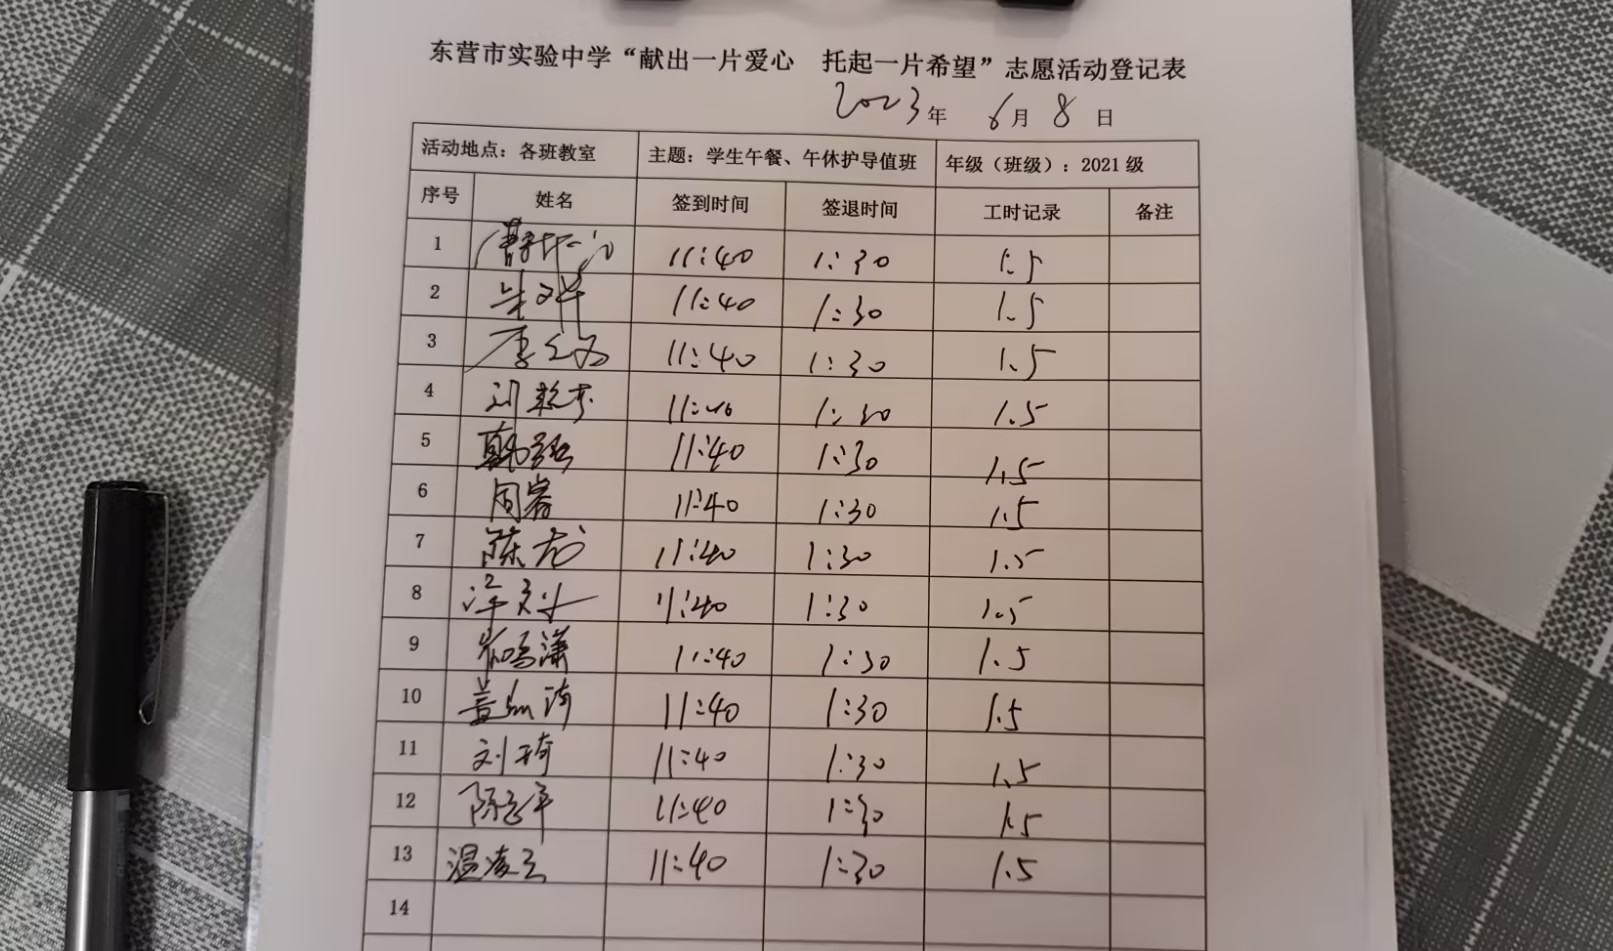 东营市实验中学“献出一片爱心 托起一片希望”志愿活动登记表
2023年 6月 8日
活动地点：各班教室 主题：学生午餐、午休护导值班 年级（班级）：2021 级
序号 姓名 签到时间 签退时间 工时记录 备注
1 11:40 1:30 1.5
2 11:40 1:30 1.5
3 11:40 1:30 1.5
4 刘 11:40 1:30 1.5
5 韩强 11:40 1:30 1.5
6 周睿 11:40 1:30 1.5
7 陈龙 11:40 1:30 1.5
8 11:40 1:30 1.5
9 崔鸣潇 11:40 1:30 1.5
10 11:40 1:30 1.5
11 刘琦 11:40 1:30 1.5
12 11:40 1:30 1.5
13 温凌云 11:40 1:30 1.5
14